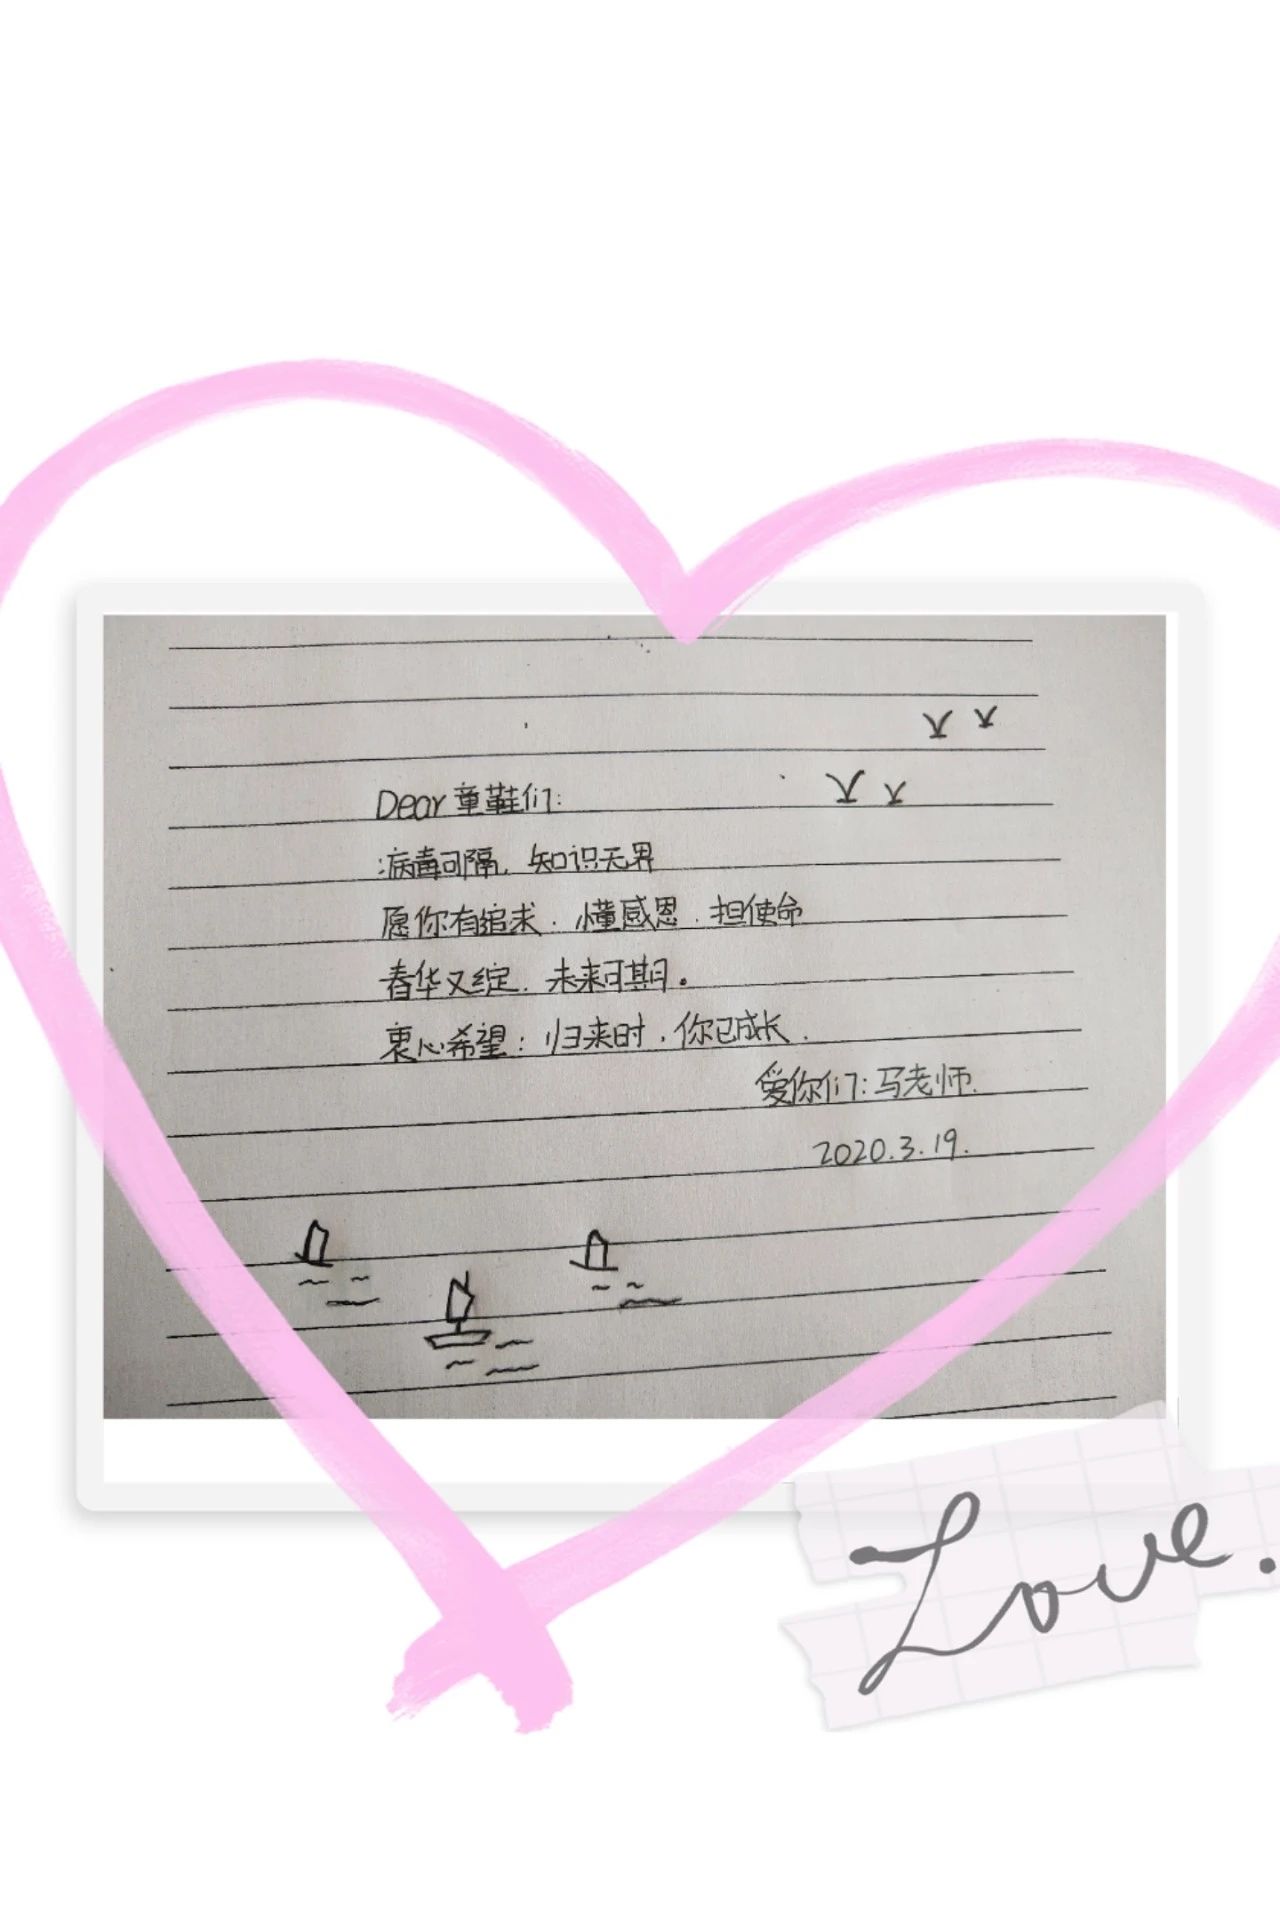 Dear 童鞋们:
病毒可隔, 知识无界
愿你有追求. 懂感恩. 担使命
春华又绽. 未来可期。
衷心希望: 归来时, 你已成长.
爱你们: 马老师.
2020.3.19.
Love.